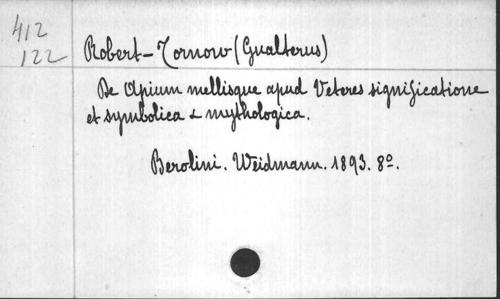 412
122
Robert-Tornow (Gualterus)
De Apium mellisque apud Veteres significatione
et symbolica & mythologica.
Berolini. Weidmann. 1893. 8º.